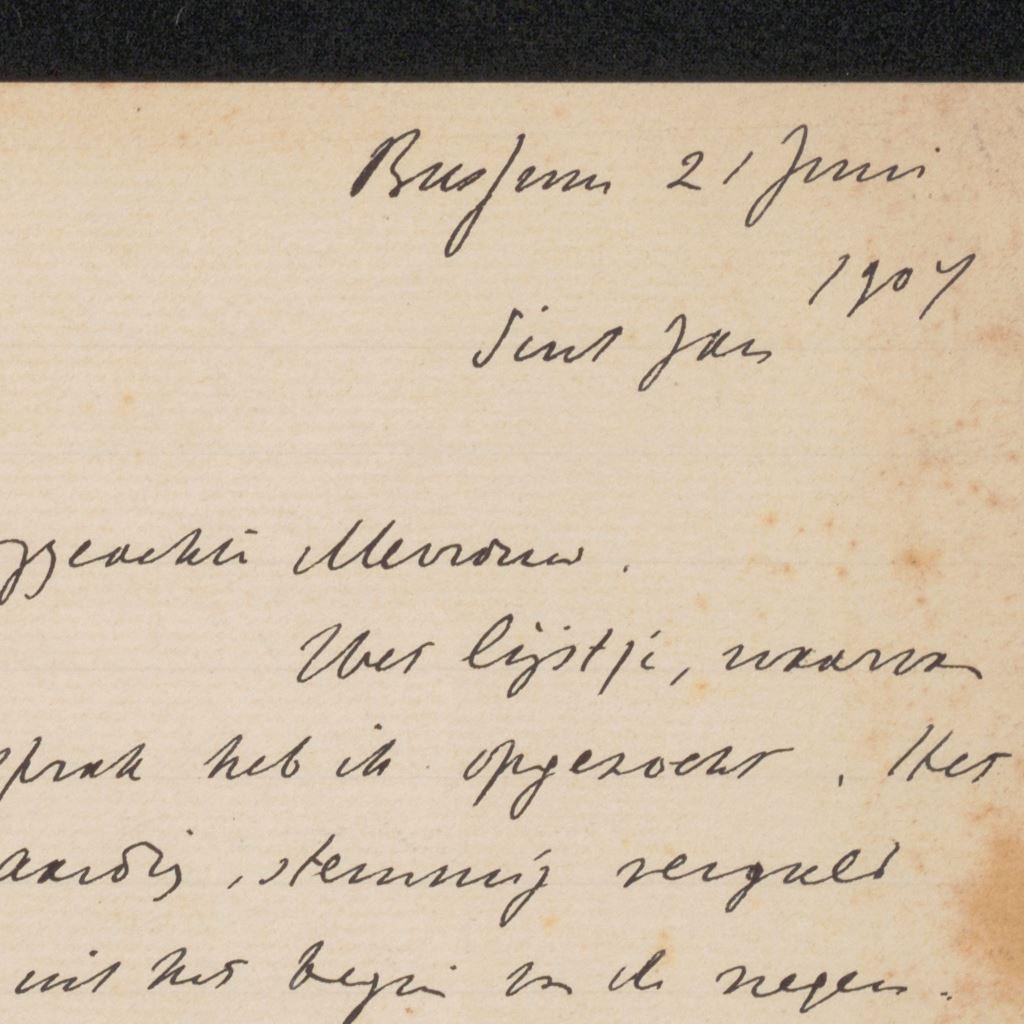 Bussum 21 Juni
1907
Sint Jan
ggeachte Mevrouw.
Het lijstje, waarvan
sprak heb ik opgezocht. Het
aardig, stemmig verguld
uit het begin van de negen-